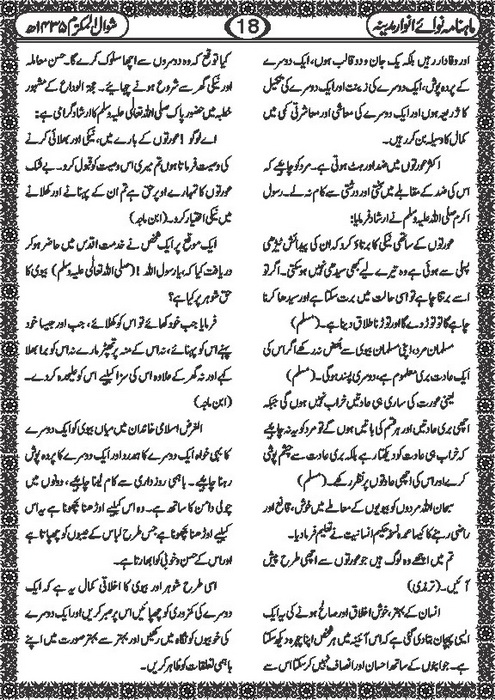 ماہنامہ نوائے انوار مدینہ
18
شوال المکرم ۱۴۳۵ھ
اور وفادار رہیں بلکہ یک جان و دو قالب ہوں، ایک دوسرے
کے پردہ پوش، ایک دوسرے کی زینت اور ایک دوسرے کی تکمیل
کا ذریعہ ہوں اور ایک دوسرے کی معاشی اور معاشرتی کمی میں
کمال کا وسیلہ بن کر رہیں۔
اکثر عورتوں میں ضد اور ہٹ ہوتی ہے۔ مرد کو چاہیے کہ
اس کی ضد کے مقابلے میں سختی اور درشتی سے کام نہ لے۔ رسول
اکرم صلی اللہ علیہ وسلم نے ارشاد فرمایا:
عورتوں کے ساتھ نیکی کا برتاؤ کرو کہ ان کی پیدائش ٹیڑھی
پسلی سے ہوئی ہے وہ تیرے لیے کبھی سیدھی نہیں ہوسکتی۔ اگر تو
اسے برتنا چاہے تو اسی حالت میں برت سکتا ہے اور سیدھا کرنا
چاہے گا تو توڑ دے گا اور توڑنا طلاق دینا ہے۔ (مسلم)
مسلمان مرد، اپنی مسلمان بیوی سے بغض نہ رکھے اگر اس کی
ایک عادت بری معلوم ہے، دوسری پسند ہوگی۔ (مسلم)
یعنی عورت کی ساری ہی عادتیں خراب نہیں ہوں گی جبکہ
اچھی بری عادتیں اور ہر قسم کی باتیں ہوں گے تو مرد کو یہ نہ چاہیے
کہ خراب ہی عادت کو دیکھتا رہے بلکہ بری عادت سے چشم پوشی
کرے اور اس کی اچھی عادتوں پر نظر رکھے۔ (مسلم)
سبحان اللہ مردوں کو بیویوں کے معاملے میں خوش، قانع اور
راضی رہنے کا کیا عمدہ نسخہ حکیم انسانیت نے تعلیم فرمادیا۔
تم میں اچھے وہ لوگ ہیں جو عورتوں سے اچھی طرح پیش
آئیں۔ (ترمذی)
انسان کے بہتر، خوش اخلاق اور صالح ہونے کی یہ ایک
ایسی پہچان بتادی گئی ہے کہ اس آئینہ میں ہر شخص اپنا چہرہ دیکھ سکتا
ہے۔ جو اپنوں کے ساتھ احسان اور انصاف نہیں کرسکتا اس سے
کیا توقع کہ وہ دوسروں سے اچھا سلوک کرے گا۔ حسن معاملہ
اور نیکی گھر سے شروع ہونے چاہیئے۔ حجۃ الوداع کے مشہور
خطبہ میں حضور پاک صلی اللہ تعالٰی علیہ وسلم کا ارشاد گرامی ہے:
اے لوگو! عورتوں کے بارے میں، نیکی اور بھلائی کرنے
کی وصیت فرماتا ہوں تم میری اس وصیت کو قبول کرو۔ بے شک
عورتوں کا تمہارے اوپر حق ہے تم ان کے پہنانے اور کھلانے
میں نیکی اختیار کرو۔ (ابن ماجہ)
ایک موقع پر ایک شخص نے خدمت اقدس میں حاضر ہو کر
دریافت کیا کہ یا رسول اللہ! (صلی اللہ تعالٰی علیہ وسلم) بیوی کا
حق شوہر پر کیا ہے؟
فرمایا جب خود کھائے تو اس کو کھلائے، جب اور جیسا خود
پہنے اس کو پہنائے، نہ اس کے منہ پر تھپڑ مارے نہ اس کو برا بھلا
کہے اور نہ گھر کے علاوہ اس کی سزا کیلئے اس کو علیحدہ کردے۔
(ابن ماجہ)
الغرض اسلامی خاندان میں میاں بیوی کو ایک دوسرے
کا بہی خواہ ایک دوسرے کا ہمدرد اور ایک دوسرے کا پردہ پوش
رہنا چاہیے۔ باہمی رواداری سے کام لینا چاہیے، دونوں میں
چولی دامن کا ساتھ ہے۔ وہ اس کیلئے اوڑھنا بچھونا ہے یہ اس
کیلئے اوڑھنا بچھونا ہے جس طرح لباس کے عیبوں کو چھپاتا ہے
اور اس کے حسن و خوبی کو ابھارتا ہے۔
اسی طرح شوہر اور بیوی کا اخلاقی کمال یہ ہے کہ ایک
دوسرے کی کمزوری کو چھپائیں اس پر صبر کریں اور ایک دوسرے
کی خوبیوں کو نگاہ میں رکھیں اور بہتر سے بہتر صورت میں اپنے
باہمی تعلقات کو ظاہر کریں۔